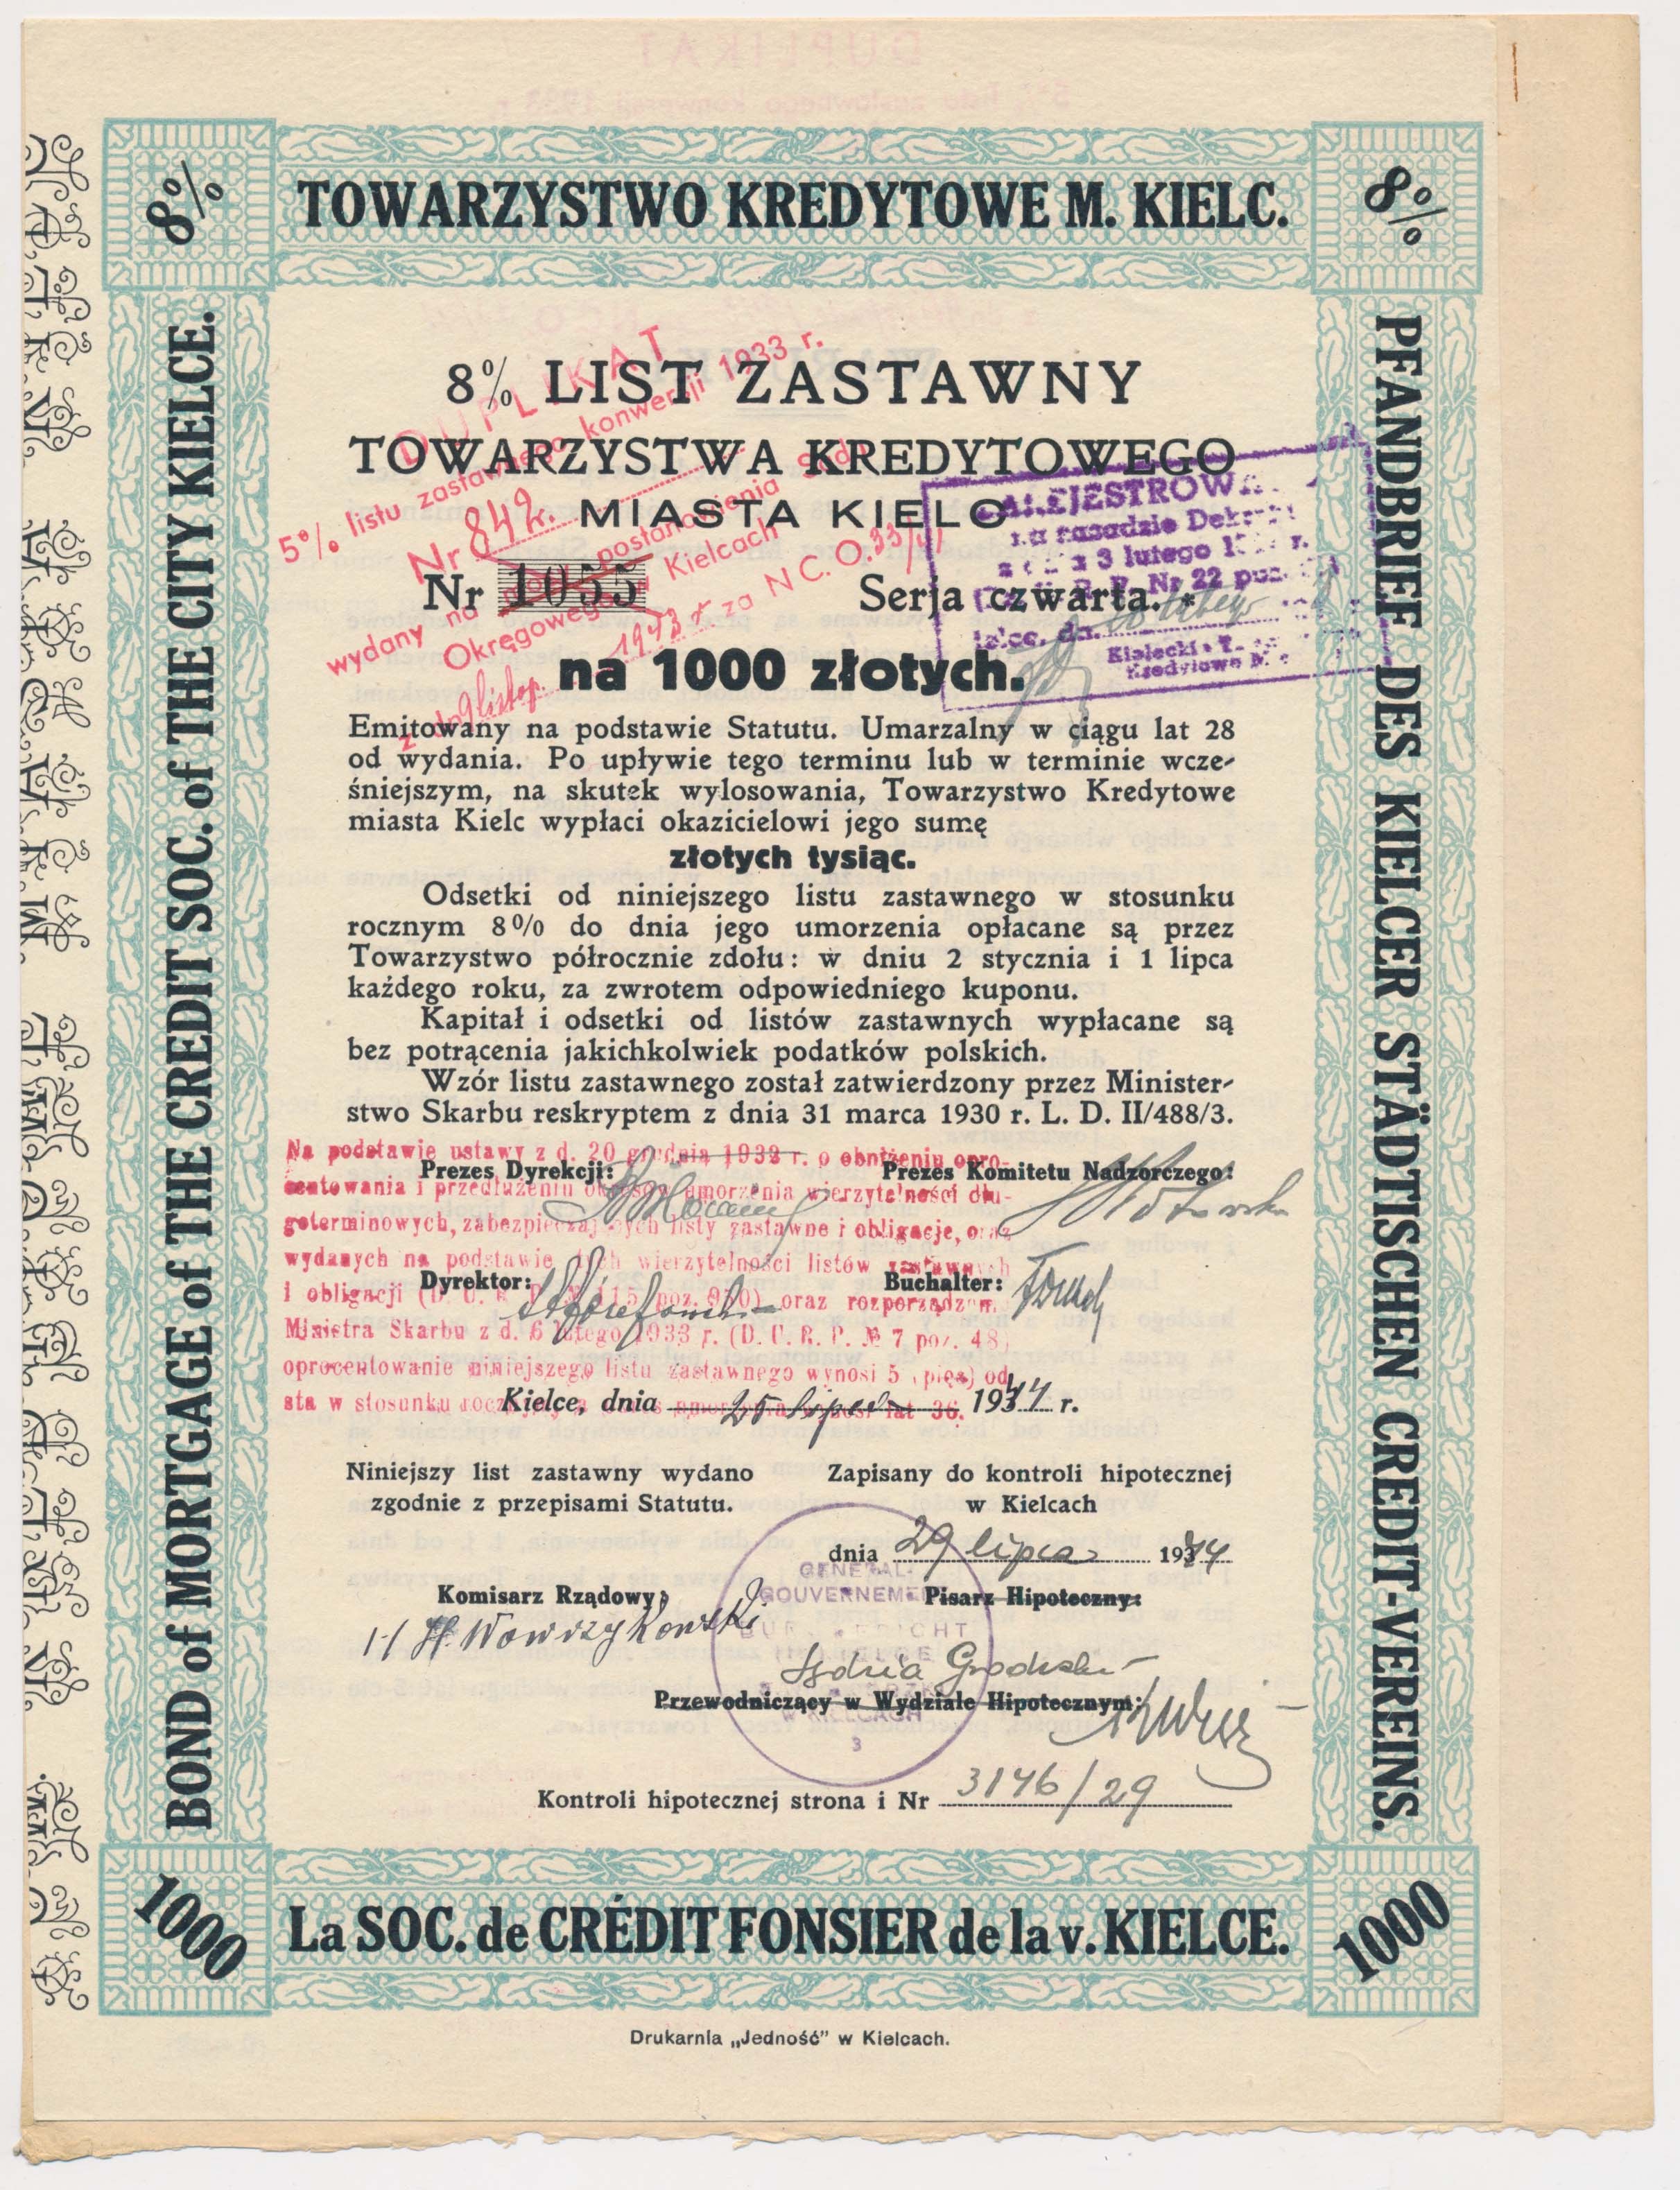 8%
TOWARZYSTWO KREDYTOWE M. KIELC.
8%
BOND of MORTGAGE of THE CREDIT SOC. of THE CITY KIELCE.
PFANDBRIEF DES KIELCER STÄDTISCHEN CREDIT-VEREINS.
DUPLIKAT
5% listu zastawnego konwersji 1933 r.
Nr 842
wydany na postanowienia Sądu
Okręgowego w Kielcach
1943 r. za N C. O. 33/41
8% LIST ZASTAWNY
TOWARZYSTWA KREDYTOWEGO
MIASTA KIELC
Nr 1055
Serja czwarta.*
3 lutego
Nr 22
na 1000 złotych.
Emitowany na podstawie Statutu. Umarzalny w ciągu lat 28
od wydania. Po upływie tego terminu lub w terminie wcze-
śniejszym, na skutek wylosowania, Towarzystwo Kredytowe
miasta Kielc wypłaci okazicielowi jego sumę
złotych tysiąc.
Odsetki od niniejszego listu zastawnego w stosunku
rocznym 8% do dnia jego umorzenia opłacane są przez
Towarzystwo półrocznie zdołu: w dniu 2 stycznia i 1 lipca
każdego roku, za zwrotem odpowiedniego kuponu.
Kapitał i odsetki od listów zastawnych wypłacane są
bez potrącenia jakichkolwiek podatków polskich.
Wzór listu zastawnego został zatwierdzony przez Minister-
stwo Skarbu reskryptem z dnia 31 marca 1930 r. L. D. II/488/3.
Na podstawie ustawy z d. 20 grudnia 1932 r. o obniżeniu opro-
centowania i przedłużeniu okresów umorzenia wierzytelności dłu-
goterminowych, zabezpieczających listy zastawne i obligacje, oraz
wydanych na podstawie tych wierzytelności listów zastawnych
i obligacji (D. U. R. P. № 115 poz. 950) oraz rozporządzen.
Ministra Skarbu z d. 6 lutego 1933 r. (D. U. R. P. № 7 poz. 48)
oprocentowanie niniejszego listu zastawnego wynosi 5 (pięć) od
sta w stosunku rocznym a okres umorzenia wynosi lat 36.
Prezes Dyrekcji:
Prezes Komitetu Nadzorczego:
Dyrektor:
Buchalter:
Kielce, dnia 25 lipca 1944 r.
Niniejszy list zastawny wydano
zgodnie z przepisami Statutu.
Zapisany do kontroli hipotecznej
w Kielcach
dnia 29 lipca 1944
Komisarz Rządowy:
Pisarz Hipoteczny:
GENERAL-
GOUVERNEMENT
W KIELCACH
3
Przewodniczący w Wydziale Hipotecznym:
Kontroli hipotecznej strona i Nr 3146/29
1000
La SOC. de CRÉDIT FONSIER de la v. KIELCE.
1000
Drukarnia „Jedność” w Kielcach.